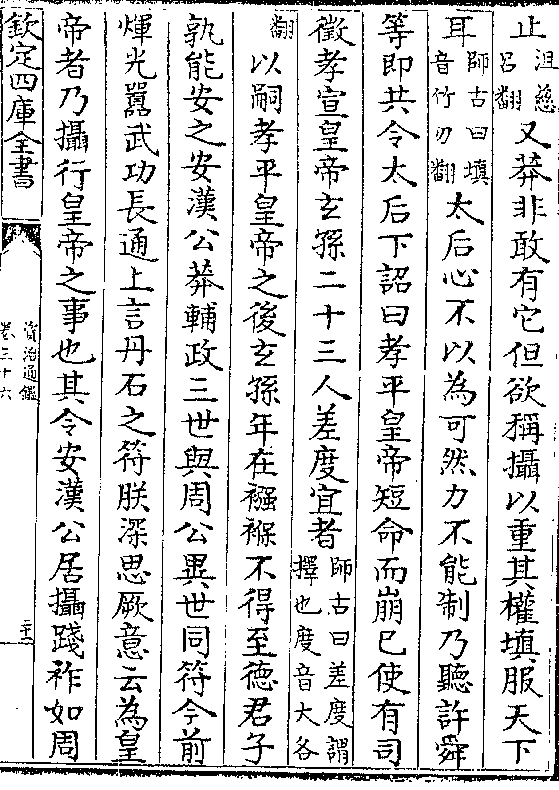 止沮慈吕翻又莽非敢有它但欲稱攝以重其權填服天下
耳師古曰填音竹刃翻太后心不以為可然力不能制乃聽許舜
等即共令太后下詔曰孝平皇帝短命而崩已使有司
徵孝宣皇帝玄孫二十三人差度宜者師古曰差度謂擇也度音大各
翻以嗣孝平皇帝之後玄孫年在襁褓不得至德君子
孰能安之安漢公莽輔政三世與周公異世同符今前
煇光嚻武功長通上言丹石之符朕深思厥意云為皇
帝者乃攝行皇帝之事也其令安漢公居攝踐祚如周
欽定四庫全書
資治通鑑
卷三十六